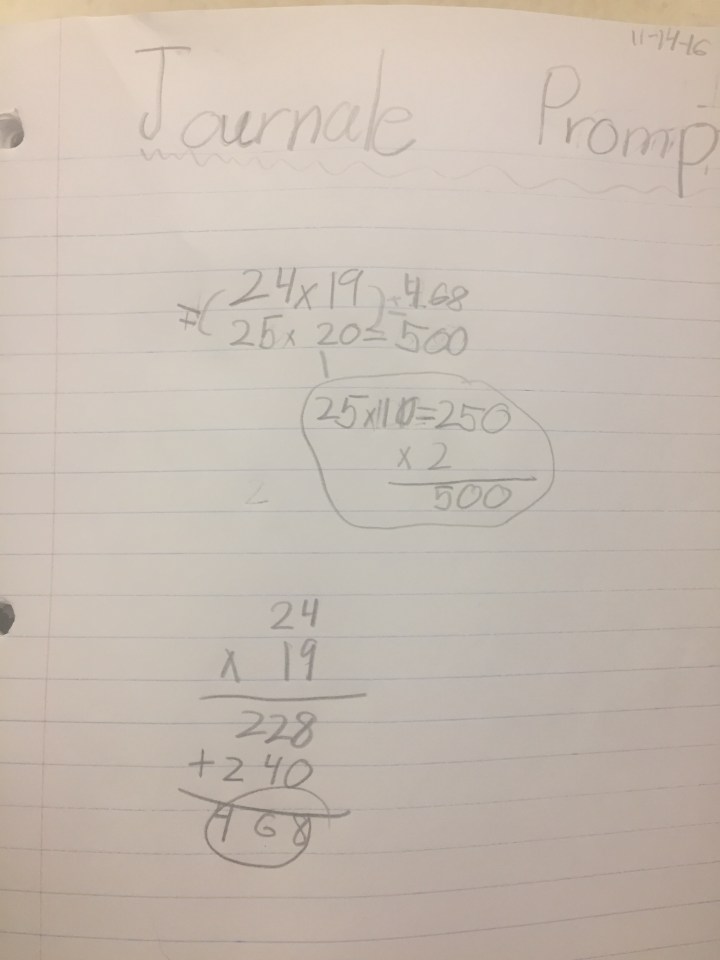 11-14-16
Journale Promp
=(24x19)=468
25x20=500
25x10=250
x2
500
24
x 19
228
+240
468